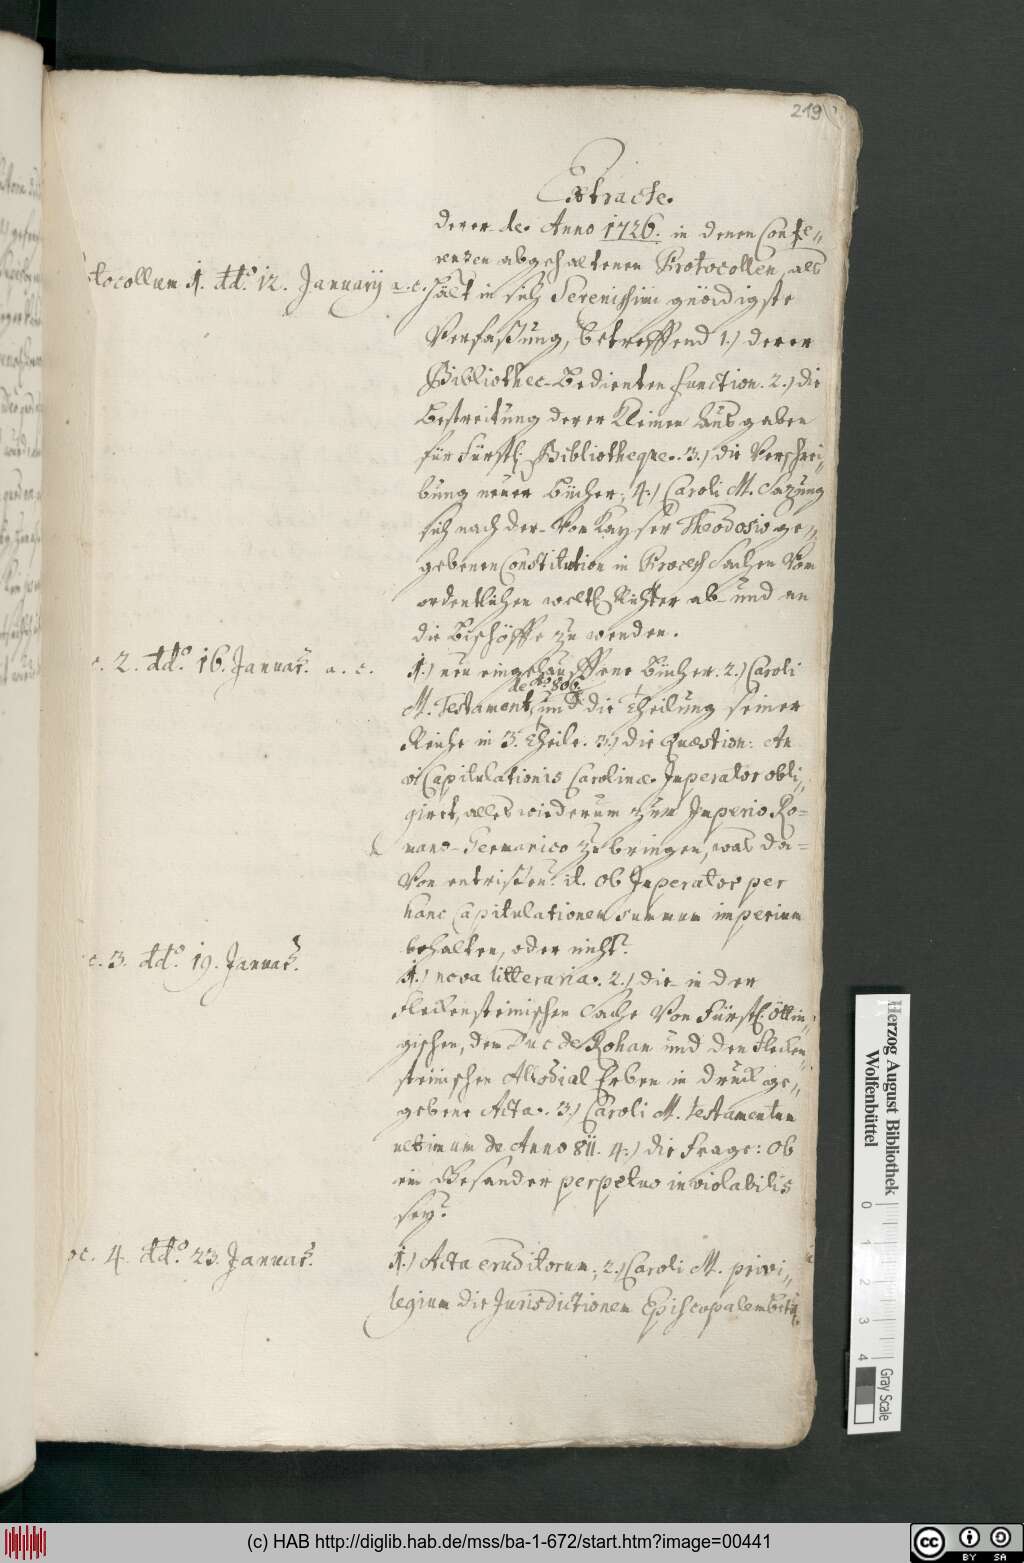 219
Extracte.
derer de Anno 1726. in denen Confe„
renzen abgehaltenen Protocollen, als
tocollum 1. ddo. 12. Januarij a. c.
hält in sich Serenissimi gnädigste
Verfaßung, betreffend 1.) derer
Bibliothec-Bedienten Function. 2.) die
Bestreitung derer Kleinen Ausgaben
für Fürstl. Bibliotheque. 3.) die Verschrei„
bung neuer Bücher, 4.) Caroli M. Sazung
sich nach der von Kayser Theodosio ge„
gebenen Constitution in Process Sachen vom
ordentlichen weltl. Richter ab- und an
die Bischöffe zu wenden.
c. 2. ddo. 16. Januar. a. c.
1.) neu eingelauffene Bücher. 2.) Caroli
de Ao 806.
M. Testament, und die Theilung seiner
Reiche in 3. Theile. 3.) die Quæstion: An
vi Capitulationis Carolinæ Imperator obli„
giret, alles wiederum zum Imperio Ro=
mano-Germanico zu bringen, was da=
von entrißen? it. ob Imperator per
hanc Capitulationem summum imperium
behalten, oder nicht?
c. 3. ddo. 19. Januar.
1.) nova litteraria. 2.) die in der
Fleckensteinischen Sache von Fürstl. Öttin„
gischen, dem Duc de Rohan und den Flecken„
steinischen Allodial Erben in Druck ge„
gebene Acta. 3.) Caroli M. Testamentum
ultimum de Anno 811. 4.) die Frage: Ob
ein Gesander perpetuo inviolabilis
sey?
oc. 4. ddo. 23. Januar.
1.) Acta eruditorum, 2.) Caroli M. privi„
legium die Jurisdictionem Episcopalem
Herzog August Bibliothek
Wolfenbüttel
0 1 2 3 4
Gray Scale
(c) HAB http://diglib.hab.de/mss/ba-1-672/start.htm?image=00441
cc BY SA